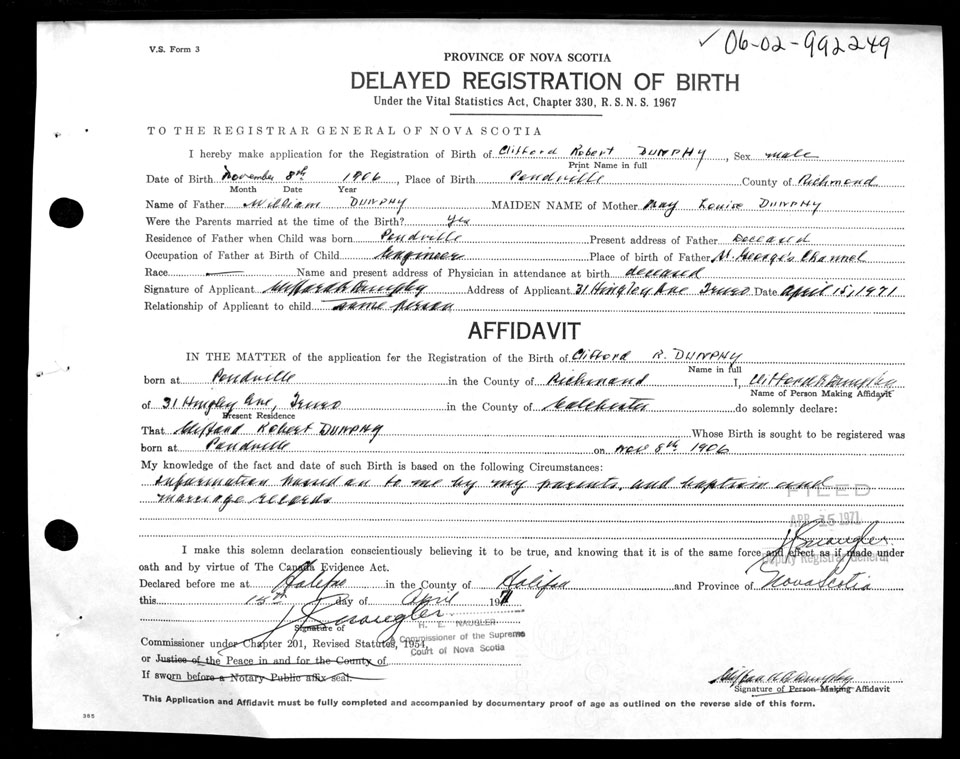 V.S. Form 3
✓ 06-02-992249
PROVINCE OF NOVA SCOTIA
DELAYED REGISTRATION OF BIRTH
Under the Vital Statistics Act, Chapter 330, R.S.N.S. 1967
TO THE REGISTRAR GENERAL OF NOVA SCOTIA
I hereby make application for the Registration of Birth of Clifford Robert DUNPHY, Sex male
Print Name in full
Date of Birth November 8th 1906, Place of Birth Pondville County of Richmond
Month Date Year
Name of Father William DUNPHY MAIDEN NAME of Mother May Louise DUNPHY
Were the Parents married at the time of the Birth? Yes
Residence of Father when Child was born Pondville Present address of Father Deceased
Occupation of Father at Birth of Child Engineer Place of birth of Father St. George's Channel
Race — Name and present address of Physician in attendance at birth deceased
Signature of Applicant Clifford R Dunphy Address of Applicant 31 Hingley Ave Truro Date April 15, 1971
Relationship of Applicant to child same person
AFFIDAVIT
IN THE MATTER of the application for the Registration of the Birth of Clifford R. DUNPHY
Name in full
born at Pondville in the County of Richmond I, Clifford R Dunphy
Name of Person Making Affidavit
of 31 Hingley Ave, Truro in the County of Colchester do solemnly declare:
Present Residence
That Clifford Robert DUNPHY Whose Birth is sought to be registered was
born at Pondville on Nov 8th 1906
My knowledge of the fact and date of such Birth is based on the following Circumstances:
Information passed on to me by my parents, and baptism and
marriage records
FILED
APR 15 1971
Deputy Registrar General
I make this solemn declaration conscientiously believing it to be true, and knowing that it is of the same force and effect as if made under
oath and by virtue of The Canada Evidence Act.
Declared before me at Halifax in the County of Halifax and Province of Nova Scotia
this 15th day of April 1971
Signature of
H. E. NAUGLER
Commissioner of the Supreme
Court of Nova Scotia
Commissioner under Chapter 201, Revised Statutes, 1954,
or Justice of the Peace in and for the County of
If sworn before a Notary Public affix seal.
Clifford R Dunphy
Signature of Person Making Affidavit
This Application and Affidavit must be fully completed and accompanied by documentary proof of age as outlined on the reverse side of this form.
365